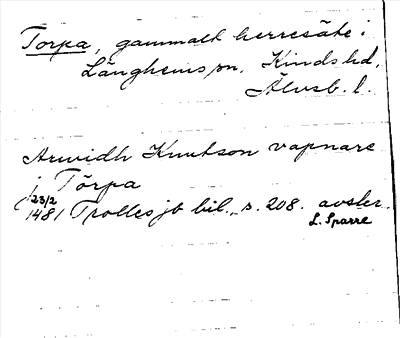 Torpa, gammalt herresäte i
Länghems sn. Kinds hd.
Älvsb. l.
Arwidh Knutson vapnare
i Törpa
23/2
1481 Trolles jb bil., s. 208. avskr.
L. Sparre